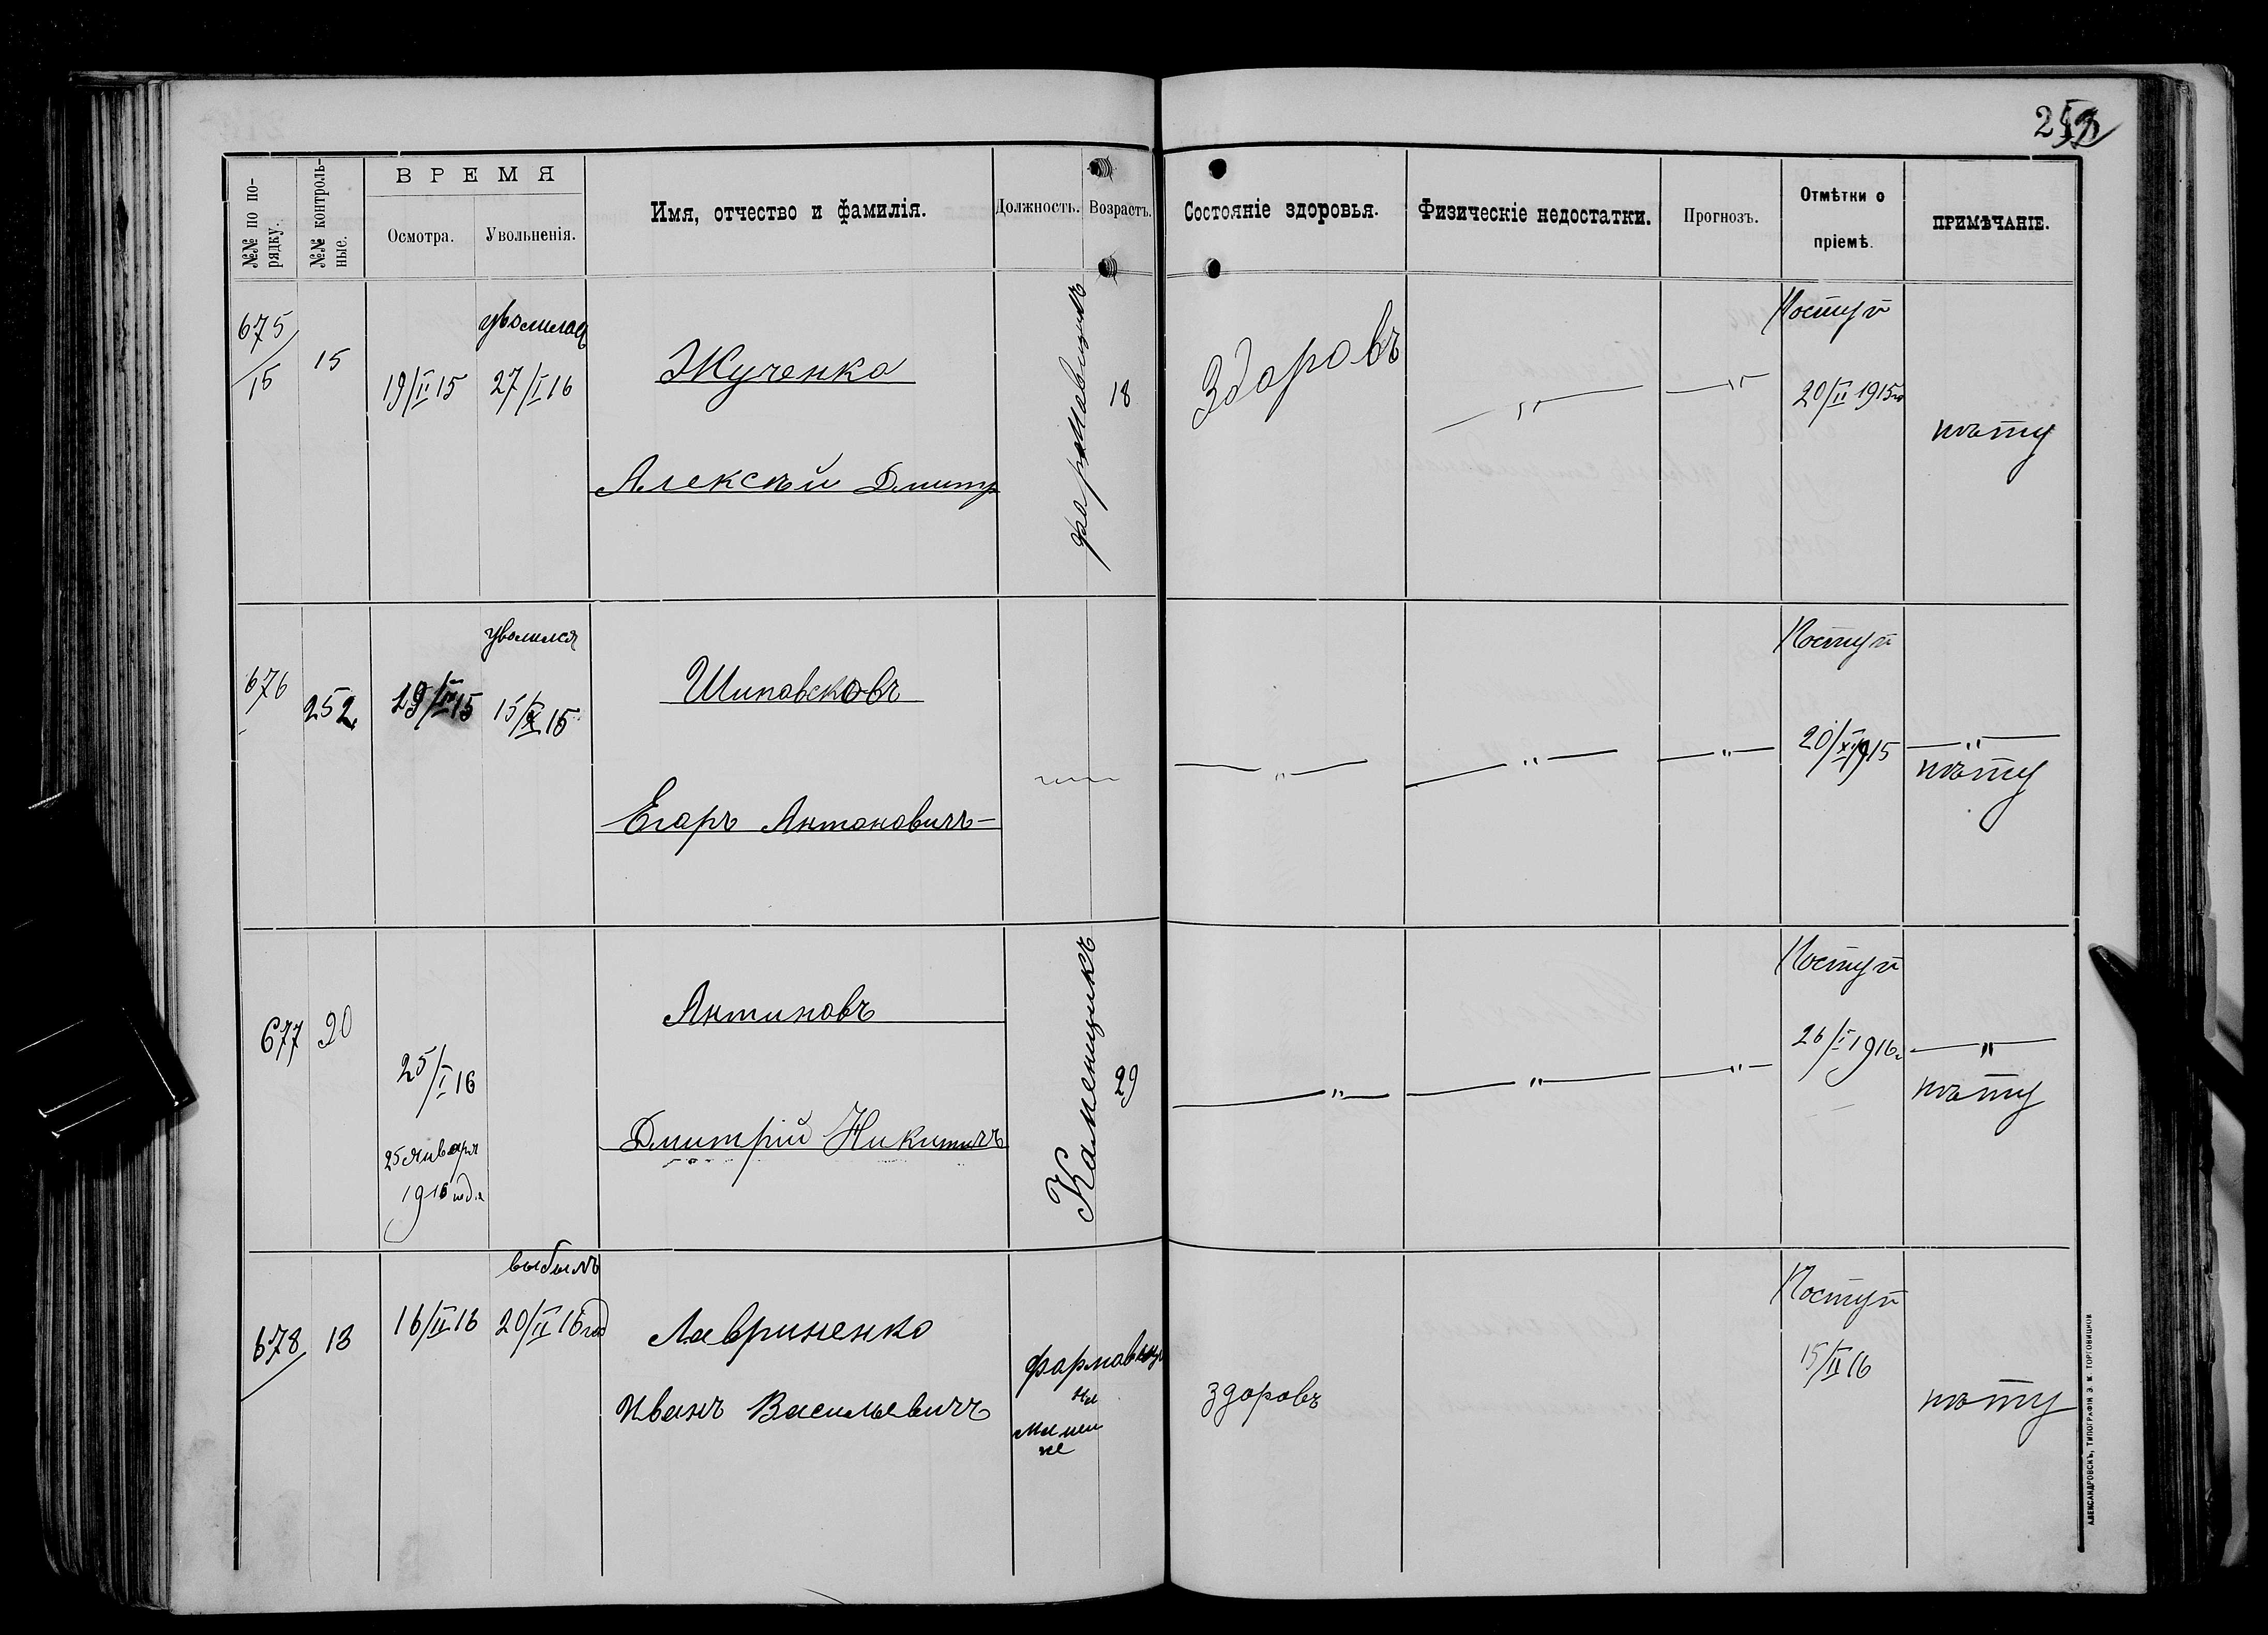 252
ВРЕМЯ
№№ по по-
рядку.
№№ контроль-
ные.
Осмотра.
Увольненія.
Имя, отчество и фамилія.
Должность.
Возрастъ.
Состояніе здоровья.
Физическіе недостатки.
Прогнозъ.
Отмѣтки о
пріемѣ.
ПРИМѢЧАНІЕ.
675/15
15
19/II 15
27/I 16
Жученко
Алексѣй Дмитр
формавщикъ
18
Здоровъ
—"—
—"—
Поступ
20/II 1915го
нѣту
676
252
уволился
15/X 15
Шиповсковъ
Егаръ Антоновичъ
—"—
—"—
—"—
Поступ
—"—
нѣту
677
20
25/I 16
25 января
1916 года
Антиповъ
Дмитрій Никитичъ
Каменщикъ
29
—"—
—"—
—"—
Поступ
26/I 1916г
—"—
нѣту
678
18
16/II 16
выбылъ
20/II 16 год
Лавриненко
Иванъ Васильевичъ
на
здоровъ
Поступ
15/II 16
нѣту
АЛЕКСАНДРОВСКЪ, ТИПОГРАФІЯ Э. К. ТОРГОВИЦКОЙ